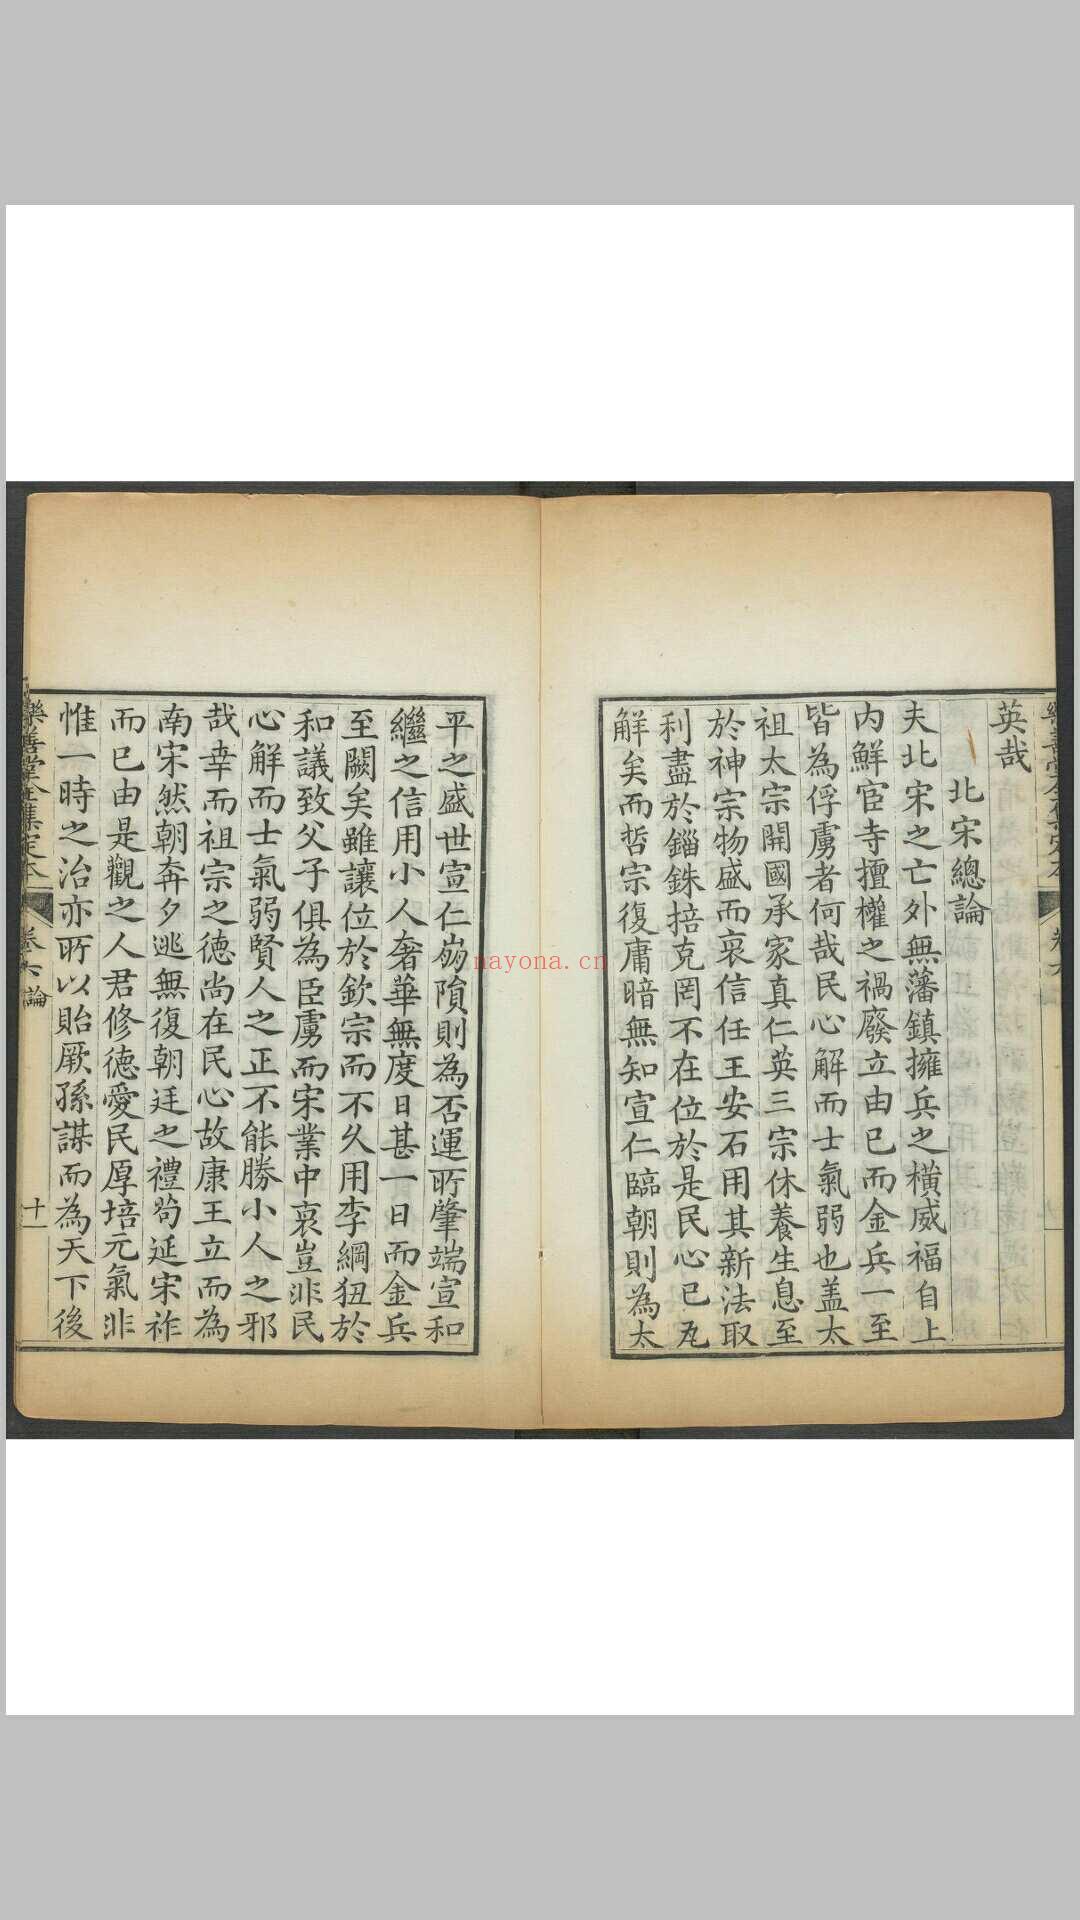 英哉
北宋總論
夫北宋之亡外無藩鎮擁兵之橫威福自上
内鮮宦寺擅權之禍廢立由已而金兵一至
皆為俘虜者何哉民心解而士氣弱也盖太
祖太宗開國承家真仁英三宗休養生息至
於神宗物盛而衰信任王安石用其新法取
利盡於錙銖掊克罔不在位於是民心已瓦
解矣而哲宗復庸暗無知宣仁臨朝則為太
平之盛世宣仁崩隕則為否運所肇端宣和
繼之信用小人奢華無度日甚一日而金兵
至闕矣雖讓位於欽宗而不久用李綱狃於
和議致父子俱為臣虜而宋業中衰豈非民
心解而士氣弱賢人之正不能勝小人之邪
哉幸而祖宗之德尚在民心故康王立而為
南宋然朝奔夕逃無復朝廷之禮茍延宋祚
而已由是觀之人君修德愛民厚培元氣非
惟一時之治亦所以貽厥孫謀而為天下後
樂善堂全集定本
卷六 論
十一
nayona.cn